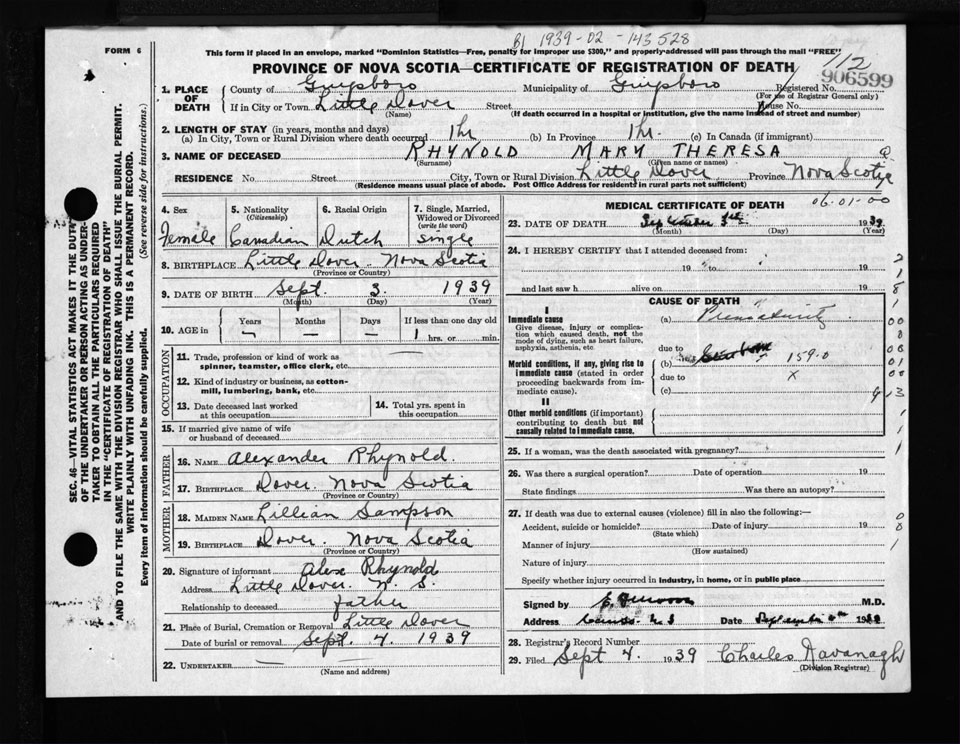 B1 1939-02-143528
FORM 6
This form if placed in an envelope, marked "Dominion Statistics—Free, penalty for improper use $300," and properly addressed will pass through the mail "FREE"
112
PROVINCE OF NOVA SCOTIA—CERTIFICATE OF REGISTRATION OF DEATH
906599
1. PLACE OF DEATH County of Guysboro Municipality of Guysboro Registered No.
(For use of Registrar General only)
If in City or Town Little Dover Street House No.
(Name) (If death occurred in a hospital or institution, give the name instead of street and number)
2. LENGTH OF STAY (in years, months and days)
(a) In City, Town or Rural Division where death occurred 1 hr (b) In Province 1 hr. (c) In Canada (if immigrant)
3. NAME OF DECEASED RHYNOLD MARY THERESA
(Surname) (Given name or names)
RESIDENCE No. Street City, Town or Rural Division Little Dover Province Nova Scotia
(Residence means usual place of abode. Post Office Address for residents in rural parts not sufficient)
4. Sex 5. Nationality (Citizenship) 6. Racial Origin 7. Single, Married, Widowed or Divorced (write the word)
Female Canadian Dutch Single
8. BIRTHPLACE Little Dover Nova Scotia
(Province or Country)
9. DATE OF BIRTH Sept. 3. 1939
(Month) (Day) (Year)
10. AGE in Years Months Days If less than one day old
— — — 1 hrs. or min.
OCCUPATION
11. Trade, profession or kind of work as spinner, teamster, office clerk, etc.
12. Kind of industry or business, as cotton-mill, lumbering, bank, etc.
13. Date deceased last worked at this occupation
14. Total yrs. spent in this occupation
15. If married give name of wife or husband of deceased
FATHER
16. NAME Alexander Rhynold.
17. BIRTHPLACE Dover. Nova Scotia
(Province or Country)
MOTHER
18. MAIDEN NAME Lillian Sampson
19. BIRTHPLACE Dover. Nova Scotia
(Province or Country)
20. Signature of informant Alex Rhynold
Address Little Dover. N. S.
Relationship to deceased father
21. Place of Burial, Cremation or Removal Little Dover
Date of burial or removal Sept. 4. 1939
22. UNDERTAKER —
(Name and address)
MEDICAL CERTIFICATE OF DEATH 06-01-00
23. DATE OF DEATH September 3rd 1939
(Month) (Day) (Year)
24. I HEREBY CERTIFY that I attended deceased from:
19 to 19
and last saw h alive on 19
CAUSE OF DEATH
I
Immediate cause
Give disease, injury or complication which caused death, not the mode of dying, such as heart failure, asphyxia, asthenia, etc.
(a) Prematurity
due to
Morbid conditions, if any, giving rise to immediate cause (stated in order proceeding backwards from immediate cause).
(b) 159.0
due to x
(c)
II
Other morbid conditions (if important) contributing to death but not causally related to immediate cause.
25. If a woman, was the death associated with pregnancy?
26. Was there a surgical operation? Date of operation 19
State findings Was there an autopsy?
27. If death was due to external causes (violence) fill in also the following:—
Accident, suicide or homicide? Date of injury 19
(State which)
Manner of injury
(How sustained)
Nature of injury
Specify whether injury occurred in industry, in home, or in public place
Signed by M.D.
Address Canso N S Date September 19
28. Registrar's Record Number
29. Filed Sept 4. 1939 Charles Kavanagh
(Division Registrar)
SEC. 46—VITAL STATISTICS ACT MAKES IT THE DUTY
OF THE UNDERTAKER OR PERSON ACTING AS UNDER-
TAKER TO OBTAIN ALL THE PARTICULARS REQUIRED
IN THE "CERTIFICATE OF REGISTRATION OF DEATH"
AND TO FILE THE SAME WITH THE DIVISION REGISTRAR WHO SHALL ISSUE THE BURIAL PERMIT.
WRITE PLAINLY WITH UNFADING INK. THIS IS A PERMANENT RECORD.
Every item of information should be carefully supplied. (See reverse side for instructions.)